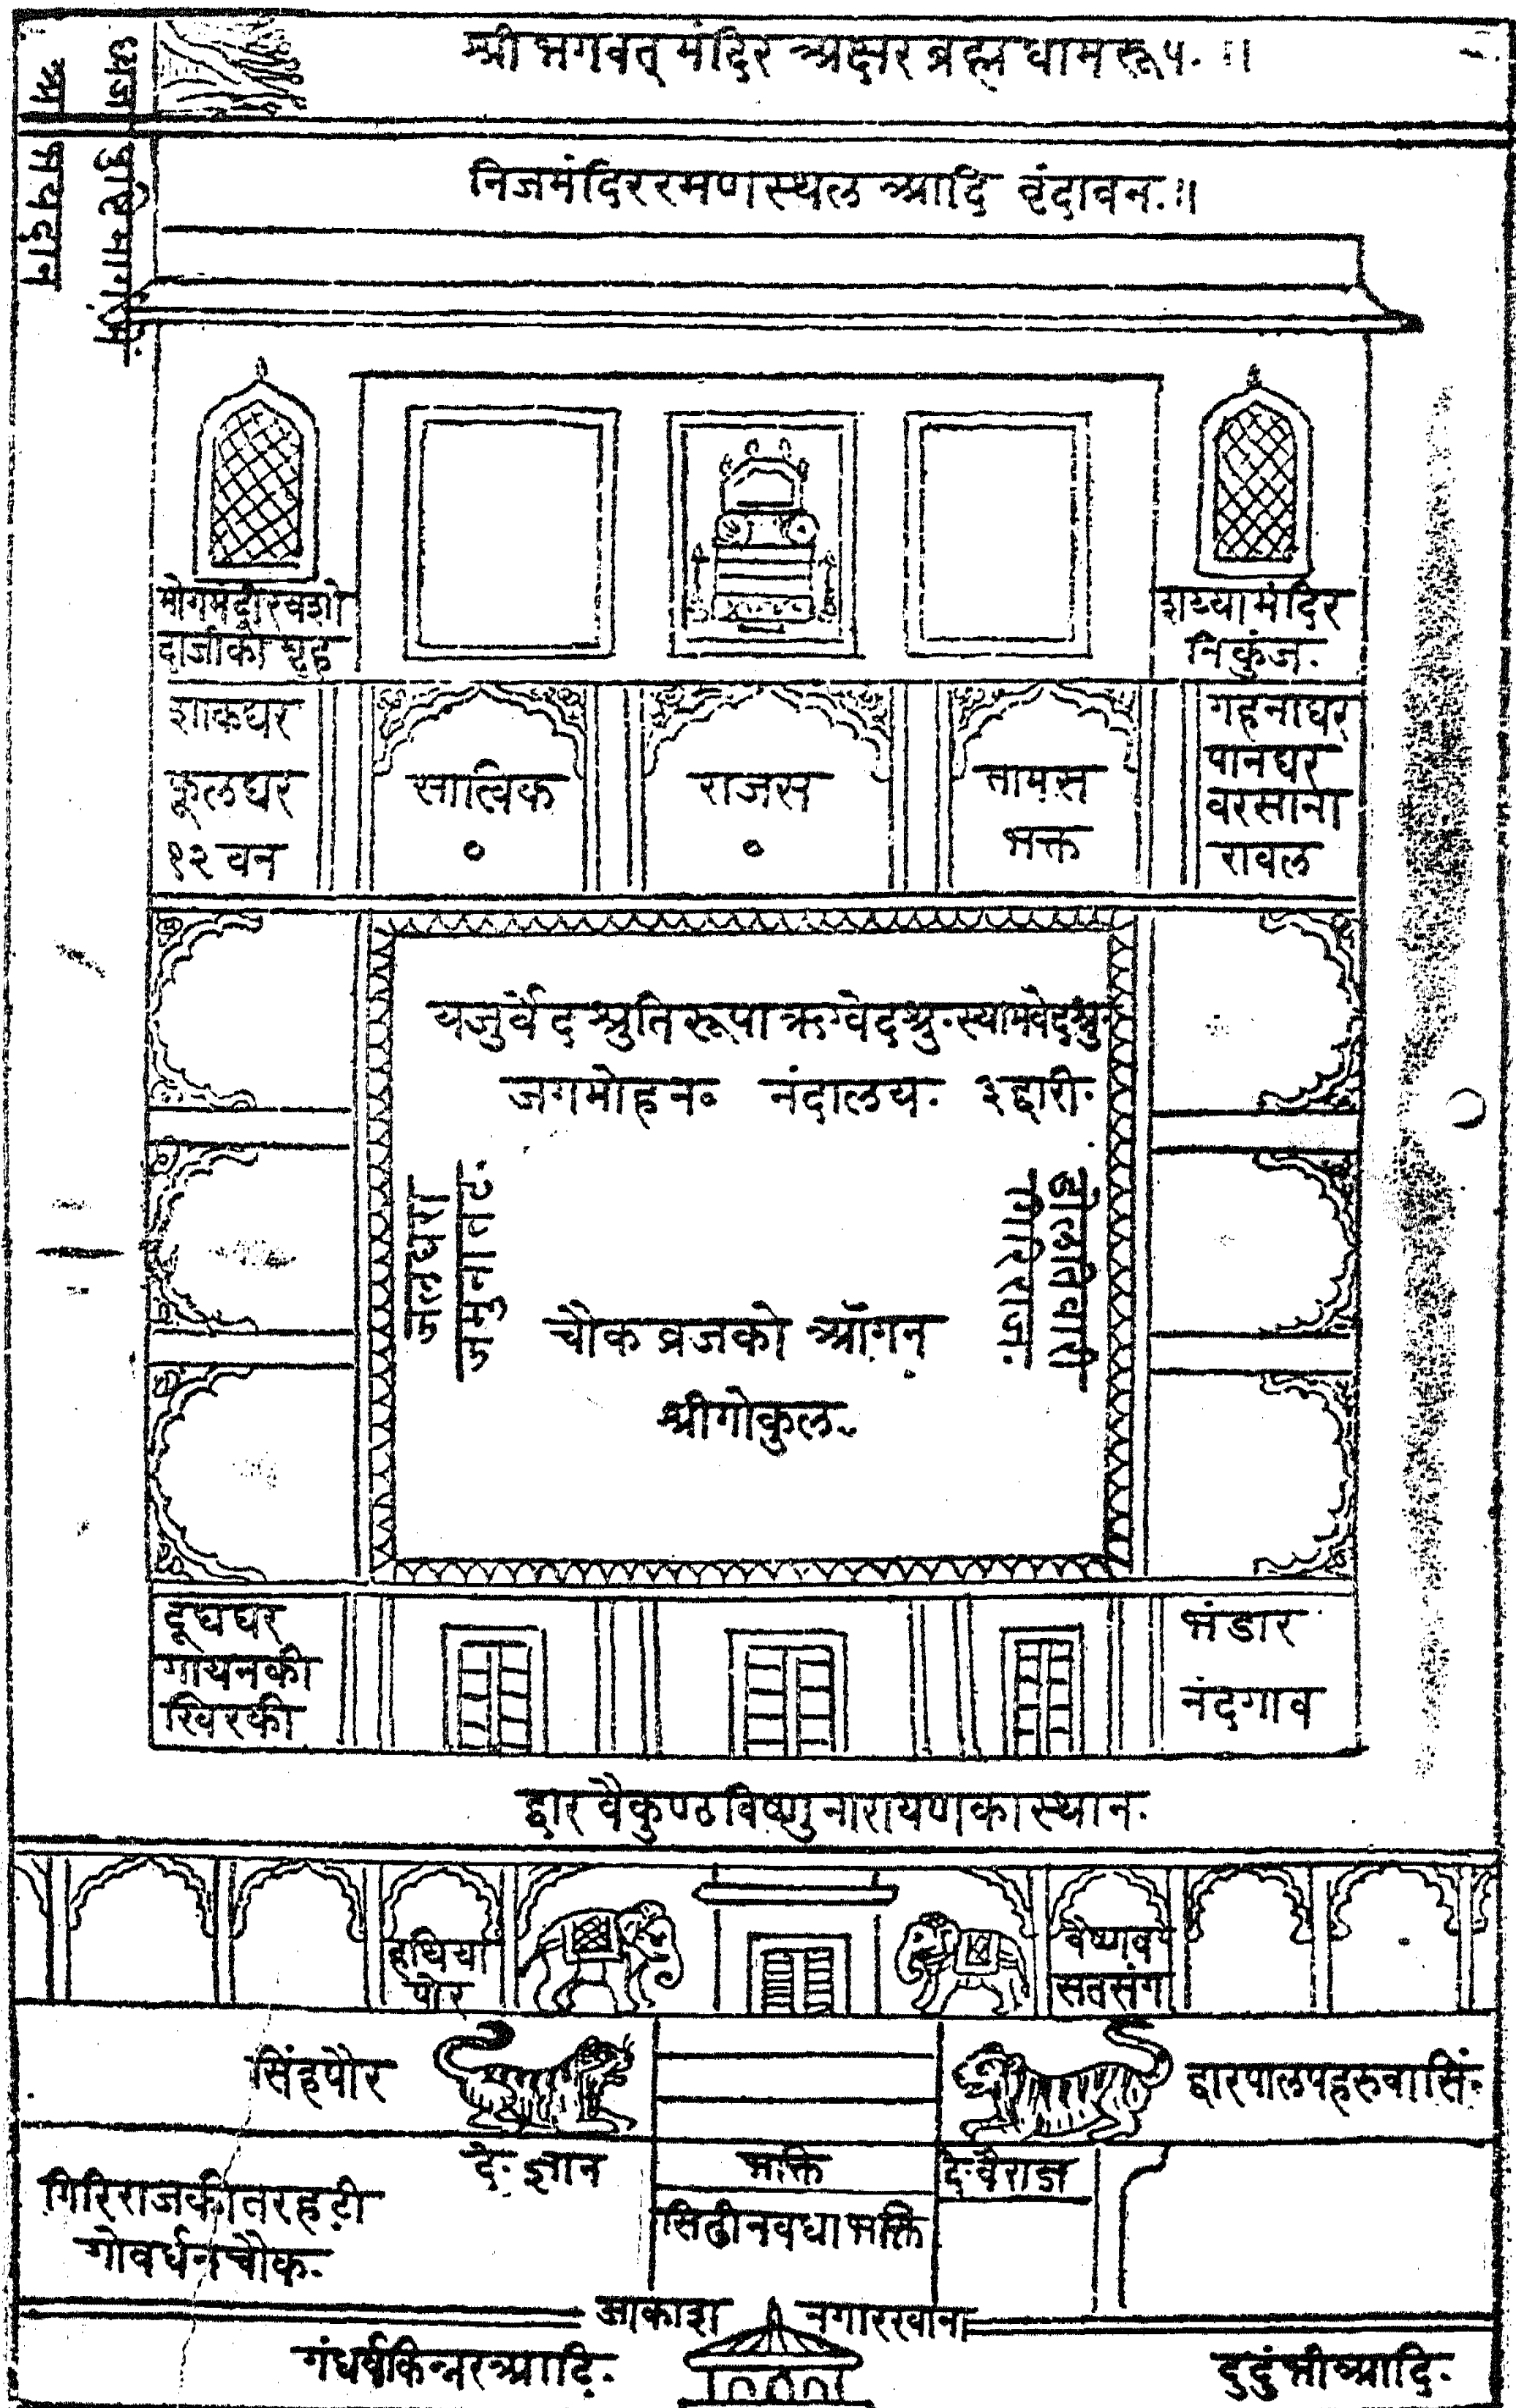 श्री भगवत् मंदिर अक्षर ब्रह्म धाम रूप. ॥
ध्वजा पुष्टिमार्ग में
अभयदान
निजमंदिर रमणस्थल आदि वृंदावन. ॥
भोगमंदीर यशो
दाजीको गृह
शय्या मंदिर
निकुंज.
शाकघर
फूलघर
१२ वन
सात्विक
राजस
तामस
भक्त
गहनाघर
पानघर
वरसाना
रावल
यजुर्वेद श्रुतिरूपा ऋग्वेद श्रु. स्यामवेद श्रु.
जगमोहन॰ नंदालय. ३ द्वारी.
जलघरा
जमुनातट.
डोलतिबारी
गिरिराज.
चौक व्रजको आँगन
श्रीगोकुल.
दूधघर
गायनकी
खिरकी
भंडार
नंदगाव
द्वार वैकुण्ठ विष्णु नारायण का स्थान.
हथिया
पोर
वैष्णव
सतसंग
सिंहपौर
द्वारपाल पहरुवा सिं.
दे. ज्ञान
भक्ति
दे. वैराज्ञ
गिरिराजकी तरहटी
गोवर्धन चौक.
सिढी नवधा भक्ति
आकाश नगारखाना
गंधर्व किन्नर आदि.
दुदुंभी आदि.